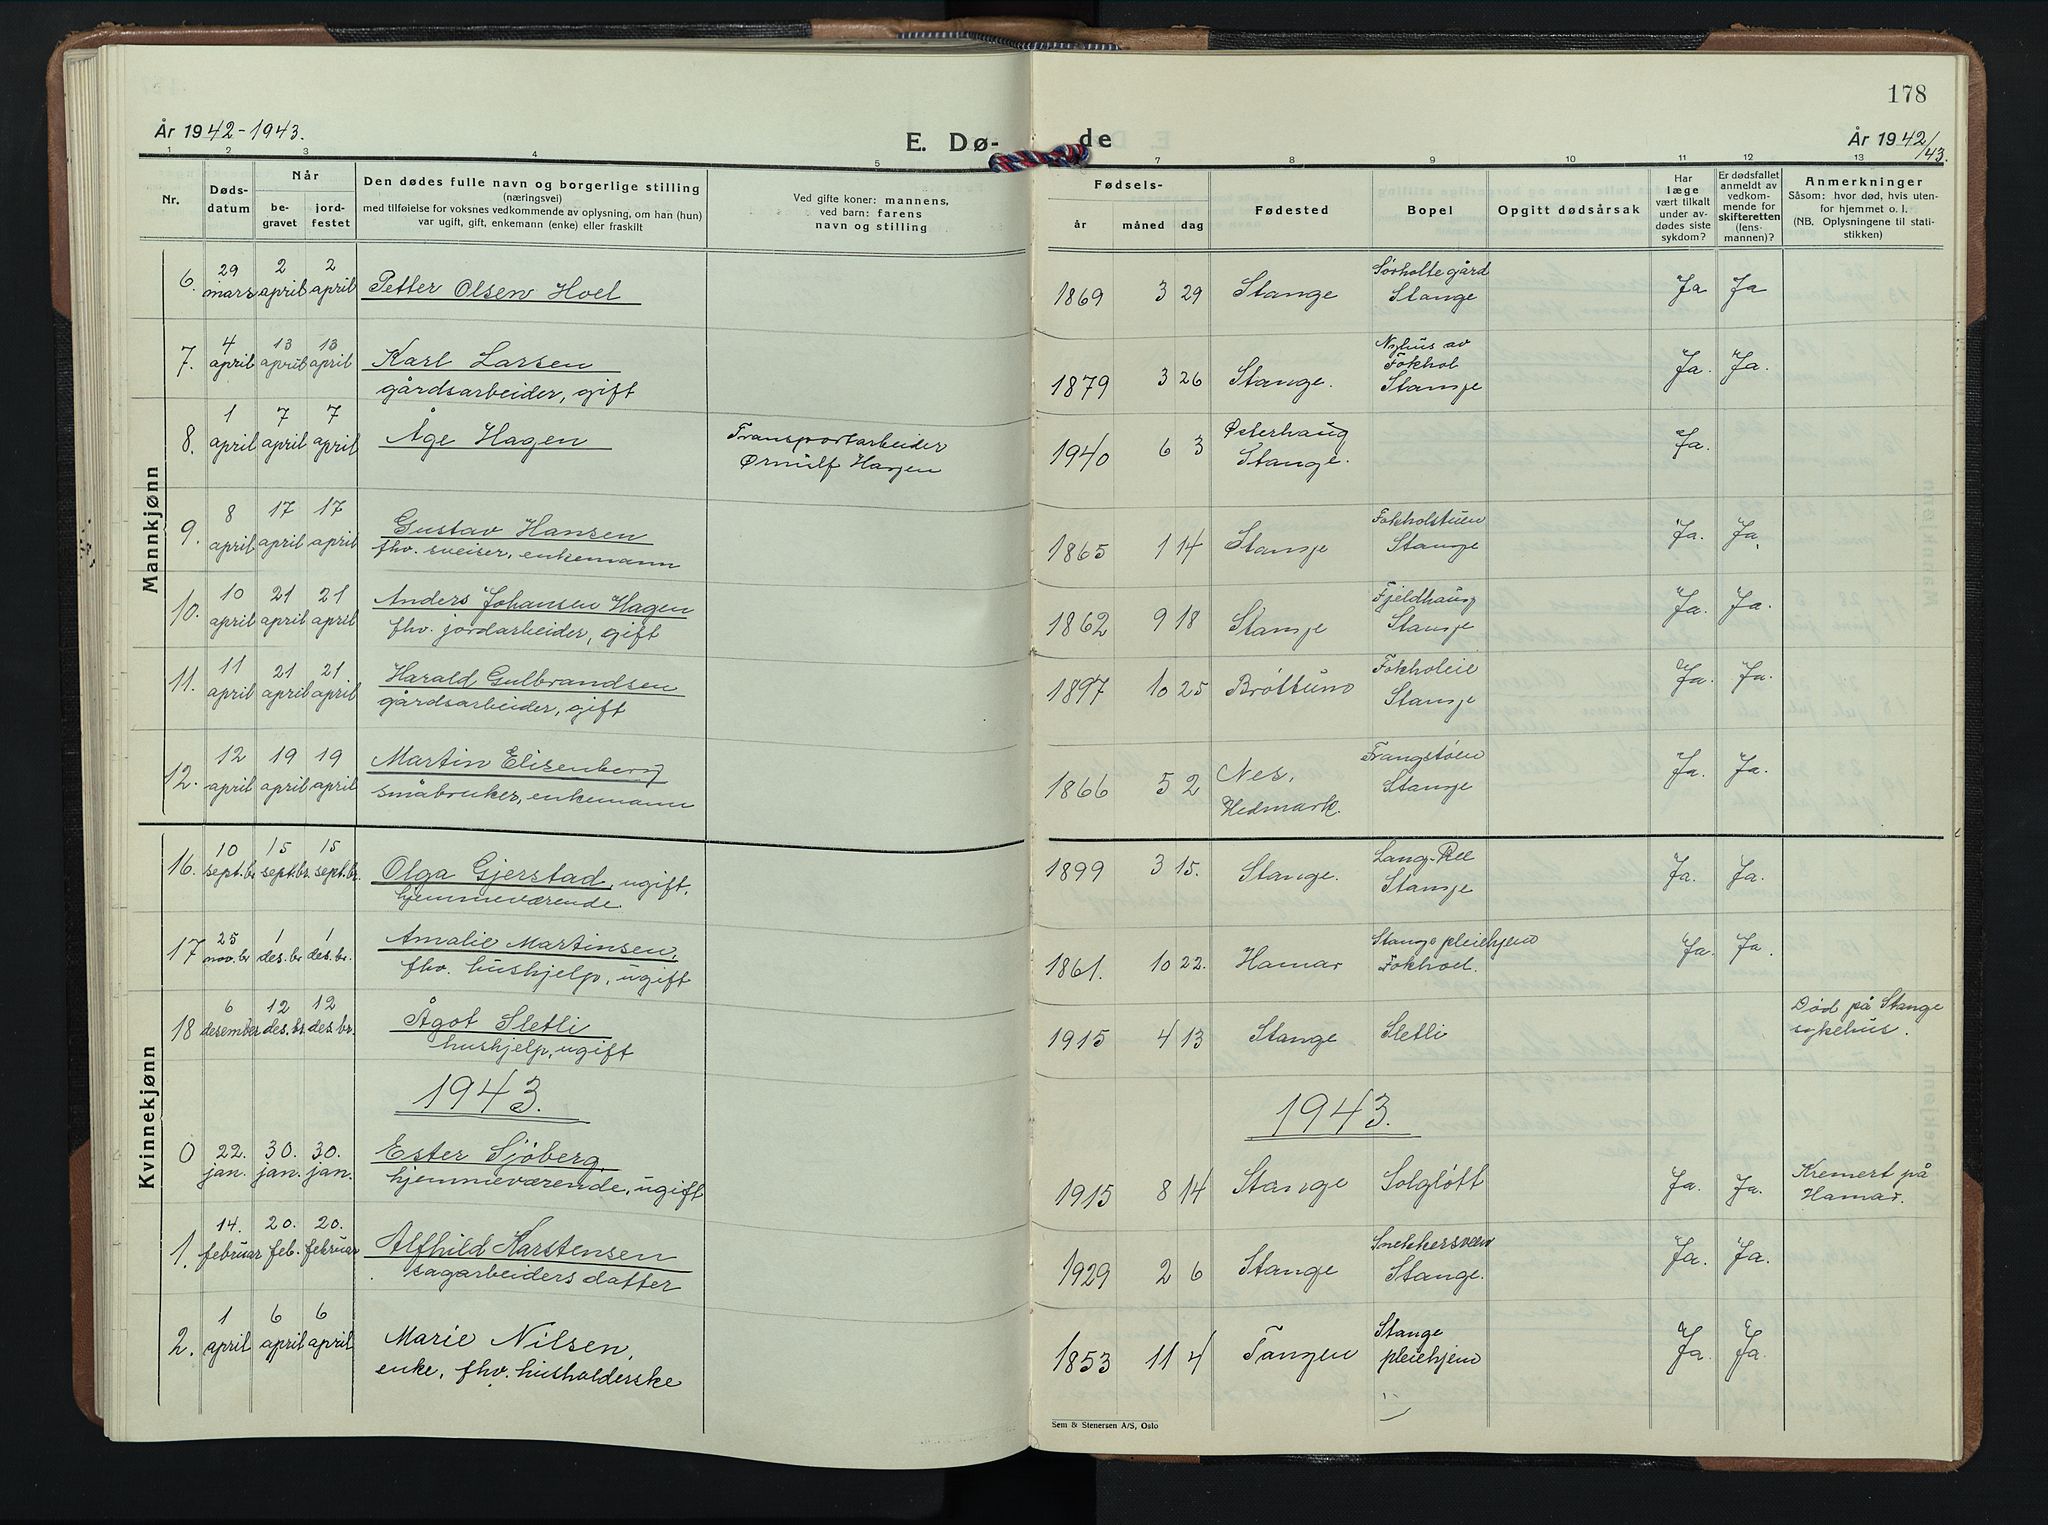 178
År 1942-1943.
E. Dø-
de
År 1942/43.
1 2 3 4 5 7 8 9 10 11 12 13
Nr.
Døds-
datum
Når
be-
gravet
jord-
festet
Den dødes fulle navn og borgerlige stilling
(næringsvei)
med tilføielse for voksnes vedkommende av oplysning, om han (hun)
var ugift, gift, enkemann (enke) eller fraskilt
Ved gifte koner: mannens,
ved barn: farens
navn og stilling
Fødsels-
år måned dag
Fødested
Bopel
Opgitt dødsårsak
Har
læge
vært tilkalt
under av-
dødes siste
sykdom?
Er dødsfallet
anmeldt av
vedkom-
mende for
skifteretten
(lens-
mannen)?
Anmerkninger
Såsom: hvor død, hvis uten-
for hjemmet o. l.
(NB. Oplysningene til stati-
stikken)
Mannkjønn
6. 29 mars 2 april 2 april Petter Olsen Hoel 1869 3 29 Stange Sørholte gård Stange Ja Ja
7. 4 april 13 april 13 april Karl Larsen 1879 3 26 Stange. Nyhus av Fokhol Stange Ja. Ja.
gårdsarbeider, gift
8. 1 april 7 april 7 april Åge Hagen Transportarbeider Ørnulf Hagen 1940 6 3 Østerhaug Stange. Ja.
9. 8 april 17 april 17 april Gustav Hansen 1865 1 14 Stange Fokholstuen Stange Ja. Ja.
fhv. sveiser, enkemann
10. 10 april 21 april 21 april Anders Johansen Hagen 1862 9 18 Stange Fjeldhaug Stange Ja. Ja.
fhv. jordarbeider, gift
11. 11 april 21 april 21 april Harald Gulbrandsen 1897 10 25 Brøttum Fokholeie Stange Ja. Ja.
gårdsarbeider, gift
12. 12 april 19 april 19 april Martin Elisenberg 1866 5 2 Nes, Hedmark. Trangstøen Stange Ja. Ja.
småbruker, enkemann
Kvinnekjønn
16. 10 sept.br 15 sept.br. 15 sept.br. Olga Gjerstad, ugift, 1899 3 15. Stange. Lang-Ree Stange Ja. Ja.
hjemmeværende.
17 25 nov.br 1 des.br 1 des.br. Amalie Martinsen, 1861. 10 22. Hamar Stange pleiehjem Fokhoel. Ja. Ja
fhv. hushjelp, ugift
18 6 desember 12 des.br. 12 des.br. Ågot Sletli 1915 4 13 Stange Sletli Død på Stange sykehus.
hushjelp, ugift
1943. 1943.
0 22. jan. 30. jan. 30. jan. Ester Sjöberg, 1915 8 14 Stange Solgløtt Ja. Ja. Kremert på Hamar.
hjemmeværende, ugift
1. 14. februar 20. feb. 20. februar Alfhild Karstensen 1929 2 6 Stange Snekkersveen Stange. Ja. Ja.
sagarbeiders datter
2. 1 april 6 april 6 april Marie Nilsen, 1853 11 4 Tangen Stange pleiehjem Ja. Ja.
enke, fhv. husholderske
Sem & Stenersen A/S, Oslo